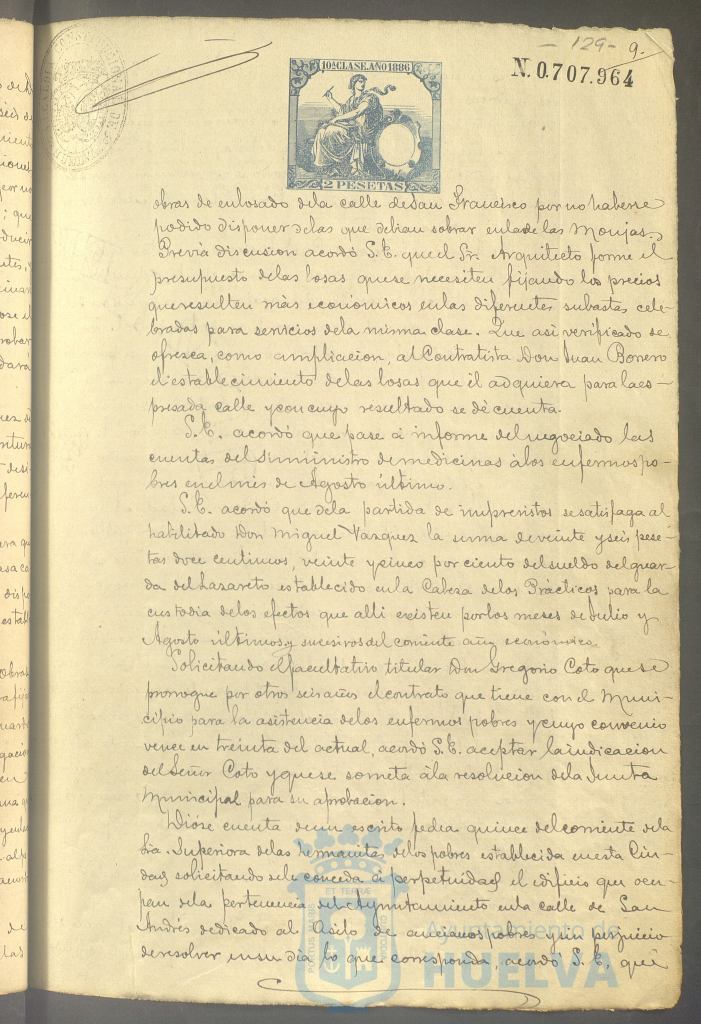 - 129 - 9.
10ª CLASE. AÑO 1886
N. 0.707.964
2 PESETAS
obras de enlosado dela calle desan Francisco por no haberse
podido disponer delas que debian sobrar enlade las Monjas.
Previa discusion acordó S.E. queel Sr. Arquitecto forme el
presupuesto delas losas quese necesiten fijando los precios
queresulten más económicos enlas diferentes subastas cele-
bradas para servicios dela misma clase. Que asi verificado se
ofrezca, como ampliacion, al Contratista Don Juan Bonero
el establecimiento delas losas que él adquiera para laes-
presada calle y con cuyo resultado se dé cuenta.
S.E. acordó que pase á informe del negociado las
cuentas del suministro de medicinas álos enfermos po-
bres enel mes de Agosto último.
S.E. acordó que dela partida de imprevistos sesatisfaga al
habilitado Don Miguel Vazquez la suma deveinte y seis pese-
tas doce centimos, veinte ycinco porciento delsueldo delguar-
da del Lazareto establecido enla Cabeza delos Prácticos para la
custodia delos efectos que alli existen porlos meses de Julio y
Agosto últimos y sucesivos del corriente año económico.
Solicitando el facultativo titular Don Gregorio Coto que se
prorrogue por otros seis años el contrato que tiene con el Muni-
cipio para la asistencia delos enfermos pobres y cuyo convenio
vence en treinta del actual, acordó S.E. aceptar la indicacion
del Señor Coto y quese someta á la resolucion dela Junta
Municipal para su aprobacion.
Dióse cuenta deun escrito fecha quince del corriente dela
Superiora delas hermanitas delos pobres establecida en esta Ciu-
dad solicitando sele conceda á perpetuidad el edificio que ocu-
pan dela pertenencia del Ayuntamiento enla calle de San
Andrés dedicado al Asilo de ancianos pobres y sin perjuicio
deresolver ensu dia lo que corresponda, acordó S.E. que
Ayuntamiento de
HUELVA